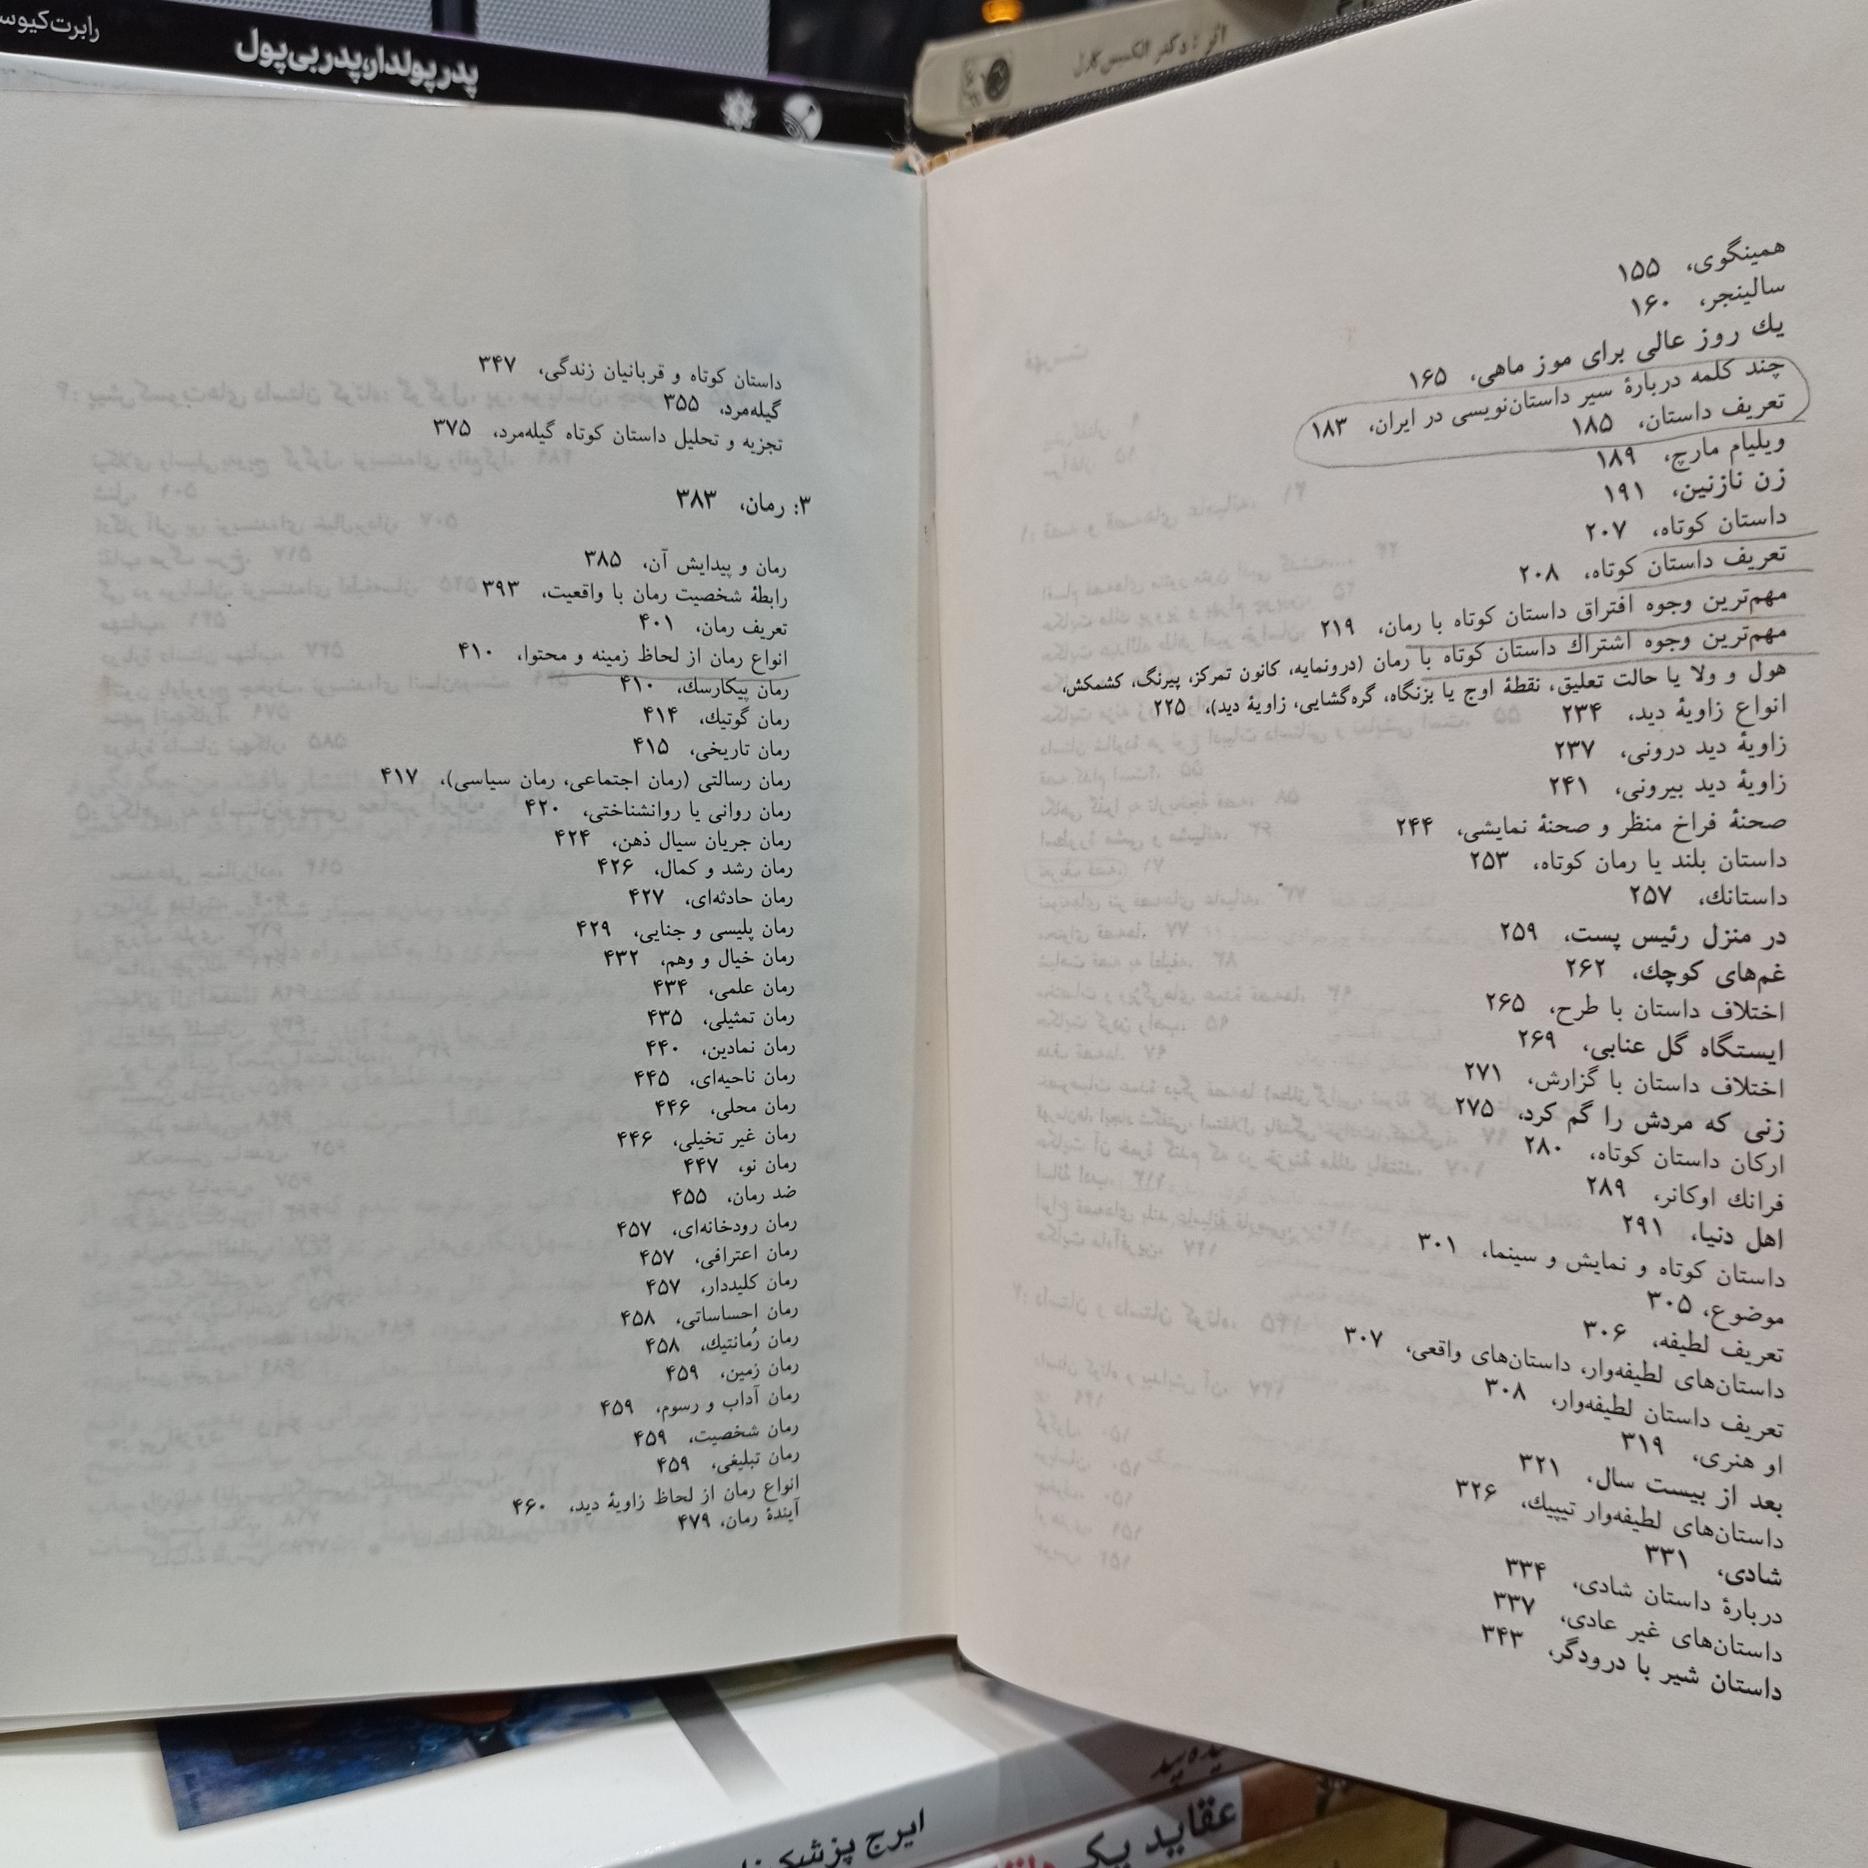 رابرت کیوس
پدر پولدار، پدر بی‌پول
اثر: دکتر الکسیس کارل
همینگوی، ۱۵۵
سالینجر، ۱۶۰
یك روز عالی برای موز ماهی، ۱۶۵
چند کلمه دربارهٔ سیر داستان‌نویسی در ایران، ۱۸۳
تعریف داستان، ۱۸۵
ویلیام مارچ، ۱۸۹
زن نازنین، ۱۹۱
داستان کوتاه، ۲۰۷
تعریف داستان کوتاه، ۲۰۸
مهم‌ترین وجوه افتراق داستان کوتاه با رمان، ۲۱۹
مهم‌ترین وجوه اشتراك داستان کوتاه با رمان (درونمایه، کانون تمرکز، پیرنگ، کشمکش،
هول و ولا یا حالت تعلیق، نقطهٔ اوج یا بزنگاه، گره‌گشایی، زاویهٔ دید)، ۲۲۵
انواع زاویهٔ دید، ۲۳۴
زاویهٔ دید درونی، ۲۳۷
زاویهٔ دید بیرونی، ۲۴۱
صحنهٔ فراخ منظر و صحنهٔ نمایشی، ۲۴۴
داستان بلند یا رمان کوتاه، ۲۵۳
داستانك، ۲۵۷
در منزل رئیس پست، ۲۵۹
غم‌های کوچك، ۲۶۲
اختلاف داستان با طرح، ۲۶۵
ایستگاه گل عنابی، ۲۶۹
اختلاف داستان با گزارش، ۲۷۱
زنی که مردش را گم کرد، ۲۷۵
ارکان داستان کوتاه، ۲۸۰
فرانك اوکانر، ۲۸۹
اهل دنیا، ۲۹۱
داستان کوتاه و نمایش و سینما، ۳۰۱
موضوع، ۳۰۵
تعریف لطیفه، ۳۰۶
داستان‌های لطیفه‌وار، داستان‌های واقعی، ۳۰۷
تعریف داستان لطیفه‌وار، ۳۰۸
او هنری، ۳۱۹
بعد از بیست سال، ۳۲۱
داستان‌های لطیفه‌وار تیپیك، ۳۲۶
شادی، ۳۳۱
دربارهٔ داستان شادی، ۳۳۴
داستان‌های غیر عادی، ۳۳۷
داستان شیر با درودگر، ۳۴۳
داستان کوتاه و قربانیان زندگی، ۳۴۷
گیله‌مرد، ۳۵۵
تجزیه و تحلیل داستان کوتاه گیله‌مرد، ۳۷۵
۳: رمان، ۳۸۳
رمان و پیدایش آن، ۳۸۵
رابطهٔ شخصیت رمان با واقعیت، ۳۹۳
تعریف رمان، ۴۰۱
انواع رمان از لحاظ زمینه و محتوا، ۴۱۰
رمان پیکارسك، ۴۱۰
رمان گوتیك، ۴۱۴
رمان تاریخی، ۴۱۵
رمان رسالتی (رمان اجتماعی، رمان سیاسی)، ۴۱۷
رمان روانی یا روانشناختی، ۴۲۰
رمان جریان سیال ذهن، ۴۲۴
رمان رشد و کمال، ۴۲۶
رمان حادثه‌ای، ۴۲۷
رمان پلیسی و جنایی، ۴۲۹
رمان خیال و وهم، ۴۳۲
رمان علمی، ۴۳۴
رمان تمثیلی، ۴۳۵
رمان نمادین، ۴۴۰
رمان ناحیه‌ای، ۴۴۵
رمان محلی، ۴۴۶
رمان غیر تخیلی، ۴۴۶
رمان نو، ۴۴۷
ضد رمان، ۴۵۵
رمان رودخانه‌ای، ۴۵۷
رمان اعترافی، ۴۵۷
رمان کلیددار، ۴۵۷
رمان احساساتی، ۴۵۸
رمان رُمانتیك، ۴۵۸
رمان زمین، ۴۵۹
رمان آداب و رسوم، ۴۵۹
رمان شخصیت، ۴۵۹
رمان تبلیغی، ۴۵۹
انواع رمان از لحاظ زاویهٔ دید، ۴۶۰
آیندهٔ رمان، ۴۷۹
ایرج پزشک
عقاید یک